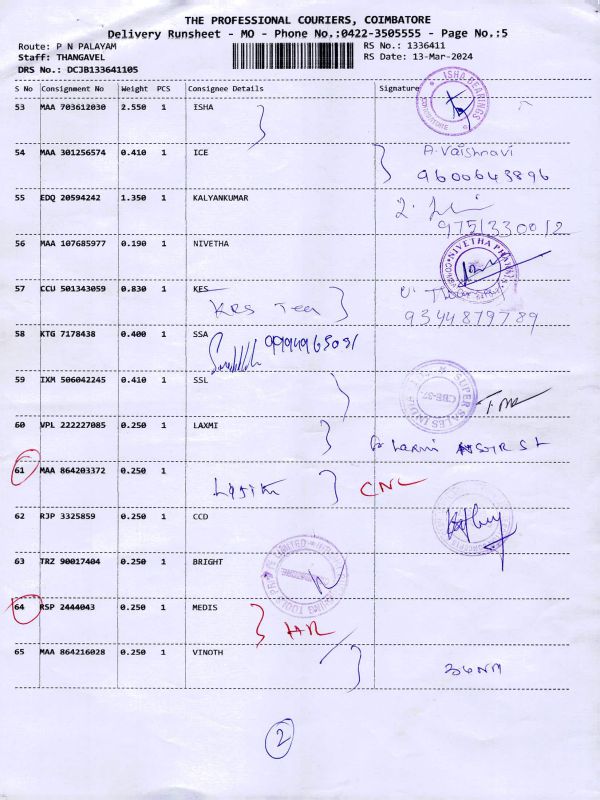 THE PROFESSIONAL COURIERS, COIMBATORE
Delivery Runsheet - MO - Phone No.:0422-3505555 - Page No.:5
Route: P N PALAYAM RS No.: 1336411
Staff: THANGAVEL RS Date: 13-Mar-2024
DRS No.: DCJB133641105
S No Consignment No Weight PCS Consignee Details Signature
53 MAA 703612030 2.550 1 ISHA
ISHA BEARINGS
COIMBATORE
54 MAA 301256574 0.410 1 ICE
A. Vaishnavi
9600643896
55 EDQ 20594242 1.350 1 KALYANKUMAR
9751330012
56 MAA 107685977 0.190 1 NIVETHA
NIVETHA
57 CCU 501343059 0.830 1 KES
KRS Tea
9344879789
58 KTG 7178438 0.400 1 SSA
59 IXM 506042245 0.410 1 SSL
SUPER SALES
CBE-37.
60 VPL 222227085 0.250 1 LAXMI
61 MAA 864203372 0.250 1
CNL
62 RJP 3325859 0.250 1 CCD
63 TRZ 90017404 0.250 1 BRIGHT
64 RSP 2444043 0.250 1 MEDIS
65 MAA 864216028 0.250 1 VINOTH
2